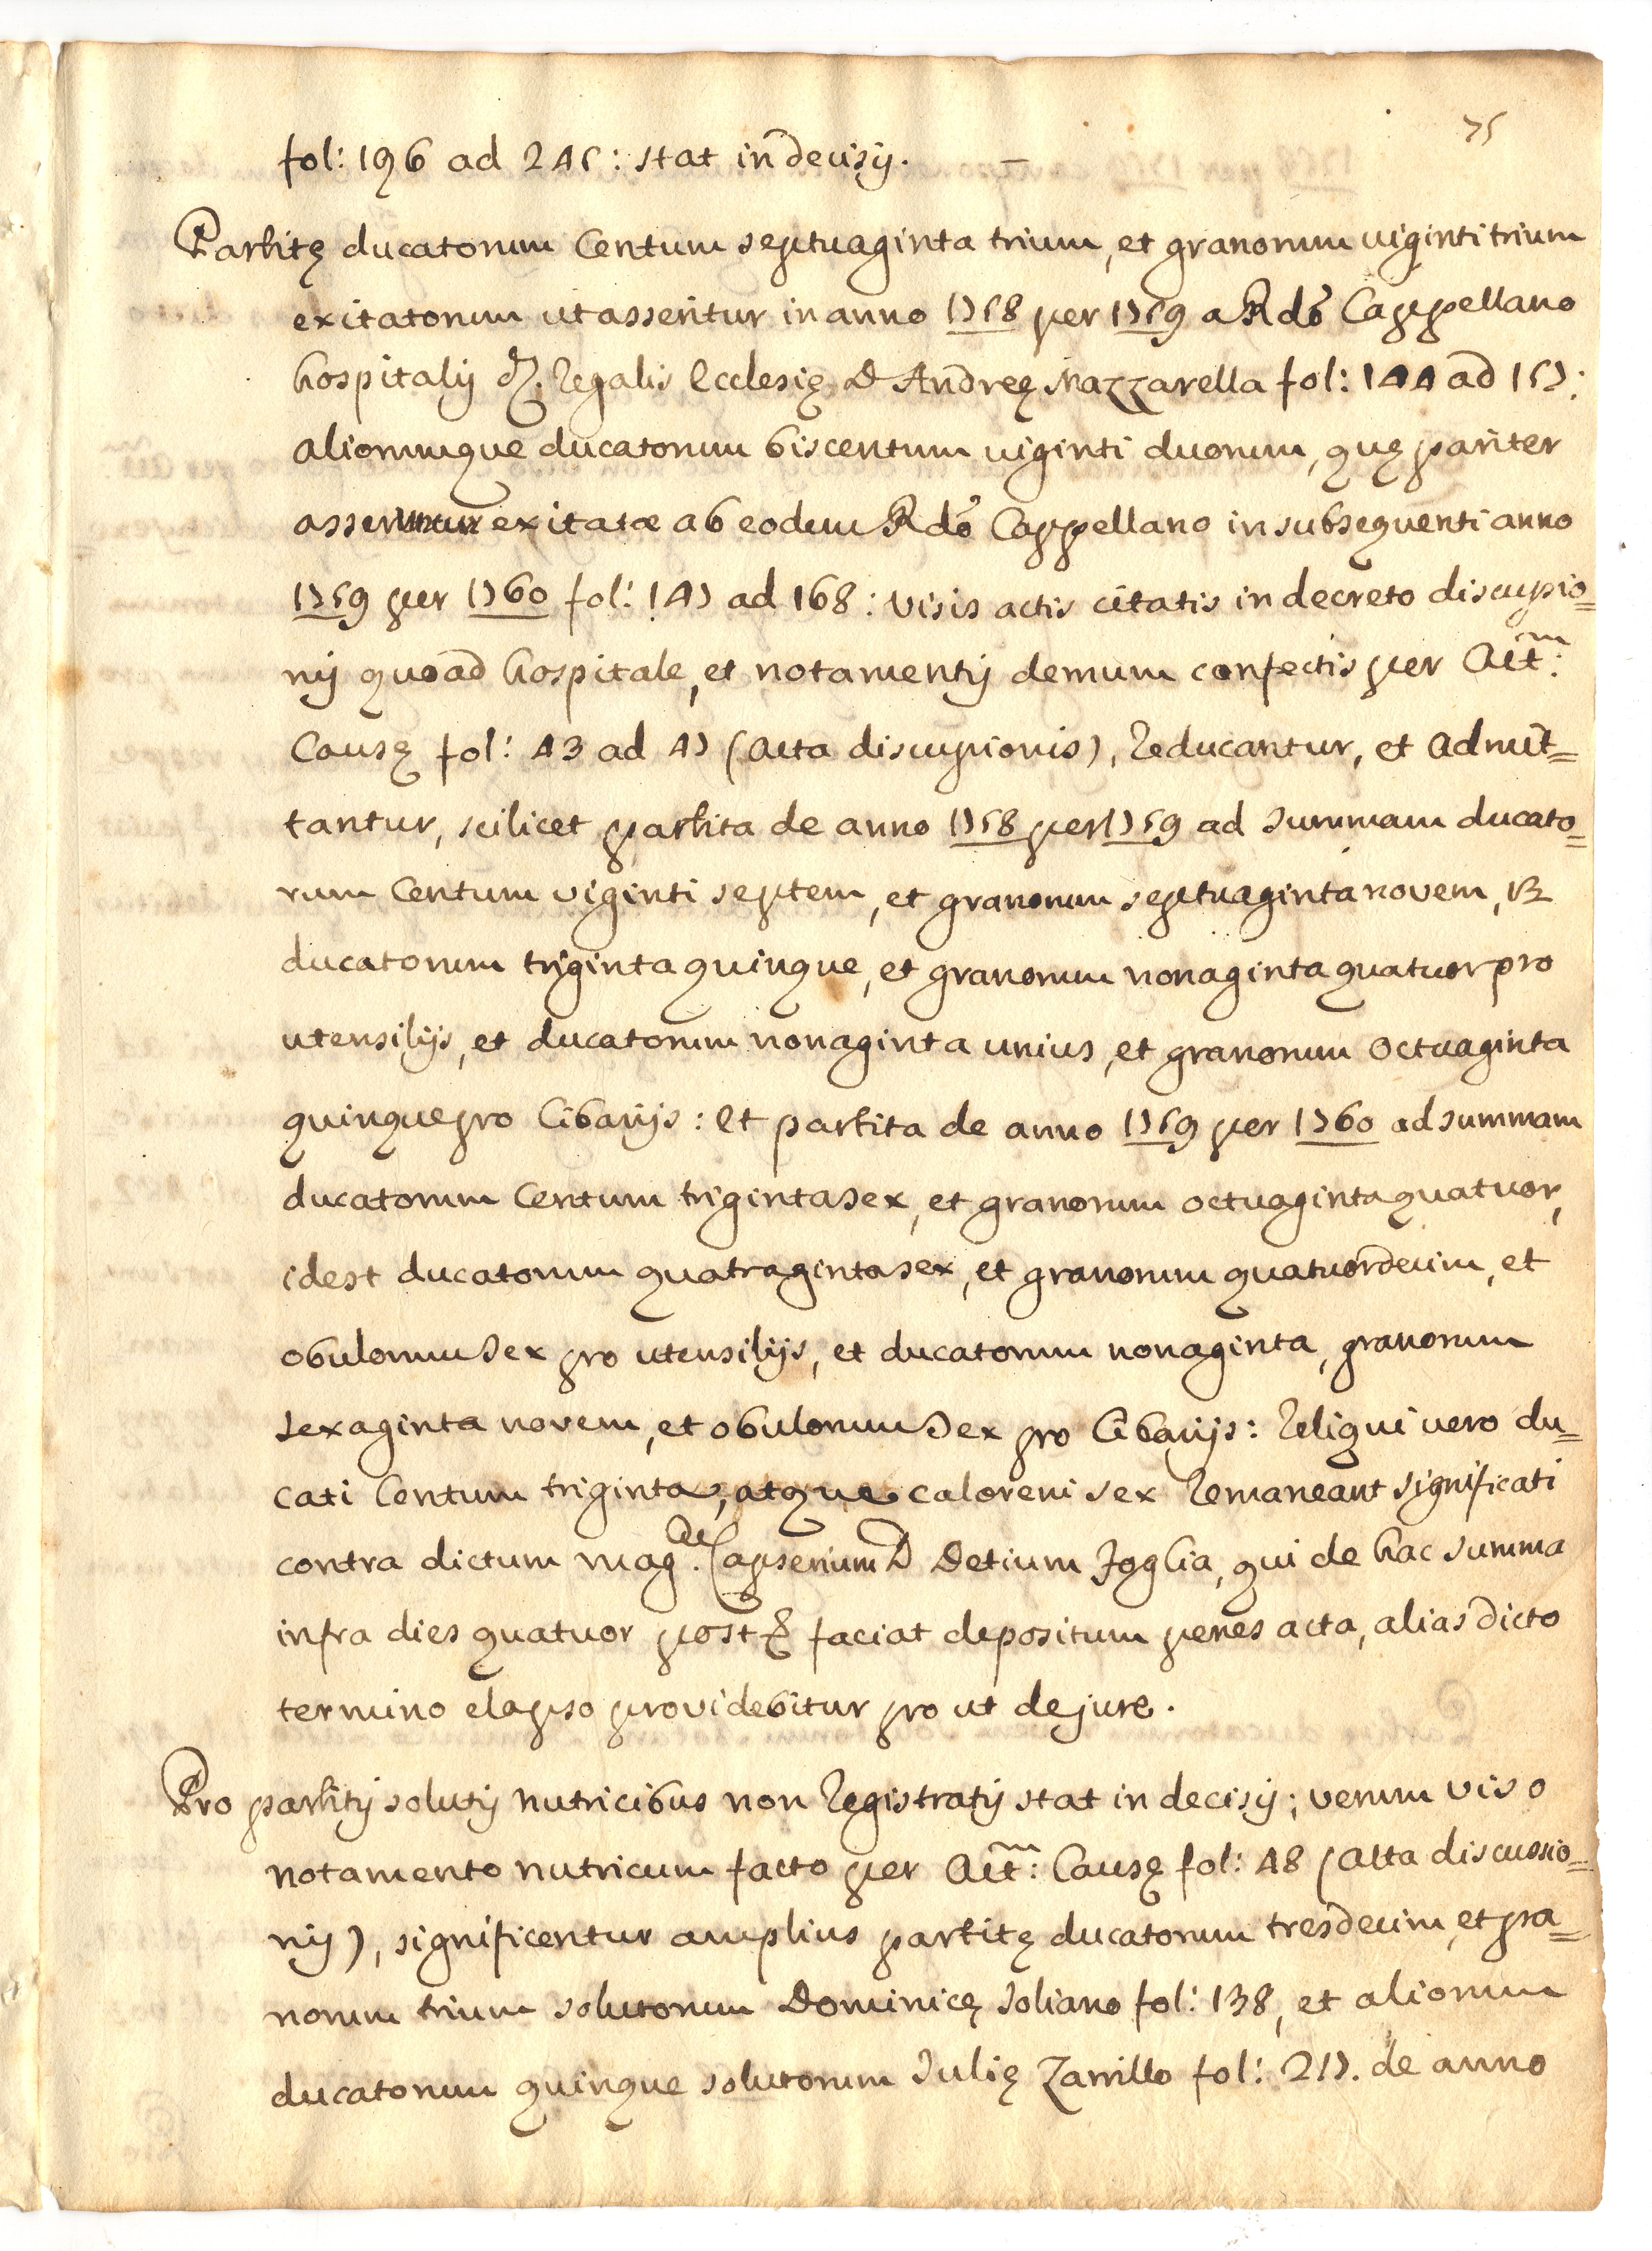 75
fol: 196 ad 245: stat in decisij. –
Partitę ducatorum Centum septuaginta trium, et granorum viginti trium
exitatorum ut asseritur in anno 1758 per 1759 a Rdo Cappellano
hospitalij d. Regalis Ecclesię D Andreę Mazzarella fol: 144 ad 157:
aliorumque ducatorum biscentum viginti duorum, quę pariter
asseruntur exitatæ ab eodem Rdo Cappellano in subsequenti anno
1759 per 1760 fol: 147 ad 168: visis actis citatis in decreto discussio=
nij quoad hospitale, et notamentij demum confectis per Act:m
Causę fol: 43 ad 47 (Acta discussionis), Reducantur, et admit=
tantur, scilicet partita de anno 1758 per 1759 ad summam ducato=
rum Centum viginti septem, et granorum septuaginta novem,
ducatorum triginta quinque, et granorum nonaginta quatuor pro
utensilijs, et ducatorum nonaginta unius, et granorum octuaginta
quinque pro Cibarijs: Et partita de anno 1759 per 1760 ad summam
ducatorum Centum triginta sex, et granorum octuaginta quatuor,
idest ducatorum quatraginta sex, et granorum quatuordecim, et
obulorum sex pro utensilijs, et ducatorum nonaginta, granorum
sexaginta novem, et obulorum sex pro Cibarijs: Reliqui vero du=
cati Centum triginta, atque caloreni sex Remaneant significati
contra dictum mag. Capserium D Detium Joglia, qui de hac summa
infra dies quatuor post faciat depositum penes acta, alias dicto
termino elapso providebitur pro ut de jure.
Pro partitij solutij nutricibus non Registratij stat in decisij; verum viso
notamento nutricum facto per Act:m Causę fol: 48 (Acta discussio=
nij), significentur amplius partitę ducatorum tresdecim, et gra=
norum trium solutorum Dominicę Soliano fol: 138, et aliorum
ducatorum quinque solutorum Julię Zarrillo fol: 217. de anno